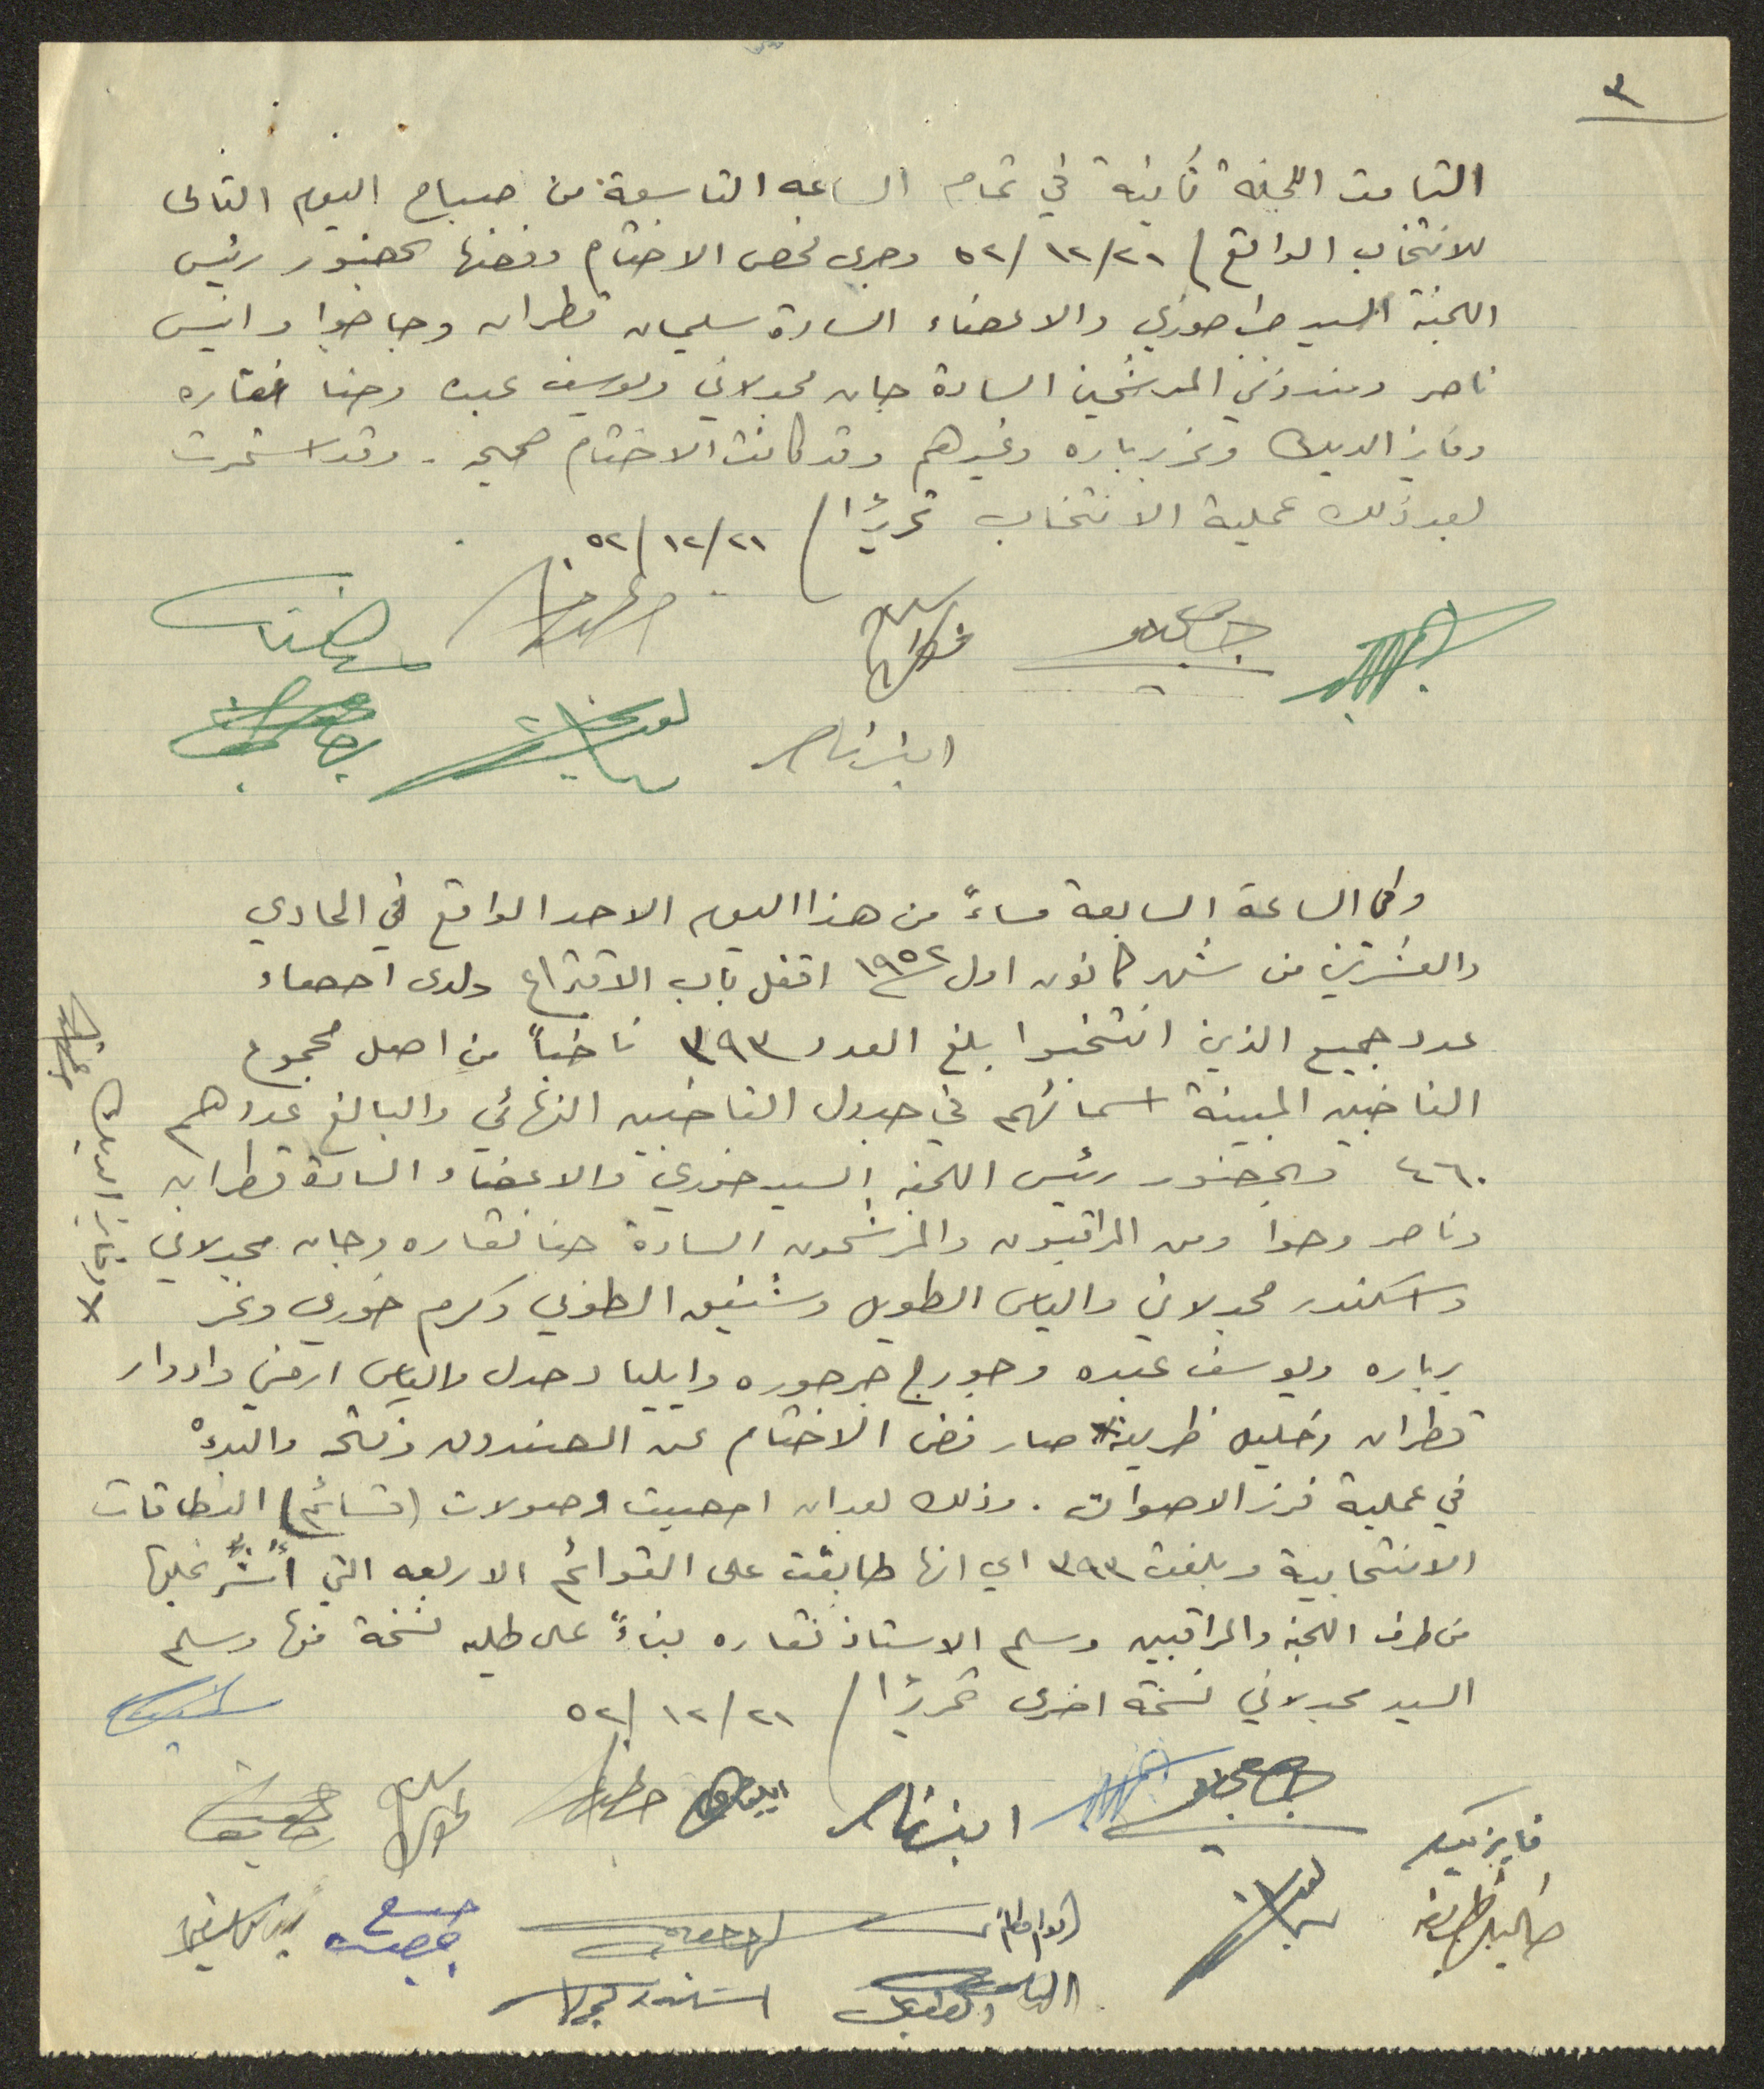 ٣
التأمت اللجنة ثانية في تمام الساعه التاسعة من صباح اليوم التالى
للانتخاب الواقع / ٥٢/١٢/٢١ وجرى فحص الاختام وفضها بحضور رئيس
اللجنة السيد خوري والاعضاء السادة سليمان قطران وحوا وانيس
ناصر ومندوبي المرشحين السادة جان مجدلاني ويوسف عبده وحنا نقاره
وفايز الديك ونمر برباره وغيرهم وقد كانت الاختام صحيحه . وقد استمرت
بعد ذلك عملية الانتخاب تحريرًا / ٥٢/١٢/٢١
انيس ناصر
وفى الساعة السابعة مساءً من هذا اليوم الاحد الواقع في الحادي
والعشرين من شهر كانون اول ١٩٥٢ اقفل باب الاقتراع ولدى احصاء
عدد جميع الذين انتخبوا بلغ العدد ٣٩٣ ناخباً من اصل مجموع
الناخبين المبينة اسمائهم في جدول الناخبين النهائي والبالغ عددهم
٤٦٠ وبحضور رئيس اللجنه السيد خوري والاعضاء السادة قطران
وناصر وحوا ومن المراقبون والمرشحون السادة حنا نقاره وجان مجدلاني
واسكندر مجدلاني والياس الطويل وشفيق الطوبي وكرم خوري ونمر
برباره ويوسف عبده وجورج جرجوره وايليا دحدل والياس ارملي وادوار
قطران وخليل طربيه x صار فض الاختام عن الصندوق وفتحه والبدءْ
في عملية فرز الاصوات . وذلك بعد ان احصيت وصولات (قسائم) البطاقات
الانتخابية وبلغت ٣٩٣ اي انها طابقت على القوائم الاربعه التي أُشّر عليها
من طرف اللجنه والمراقبين وسلم الاستاذ نقاره بناءً على طلبه نسخة منها وسلم
السيد مجدلاني نسخة اخرى تحريرًا / ٥٢/١٢/٢١
x وفايز الديك
انيس ناصر
فايز ديك
الياس الطويل
اسكندر مجدلاني